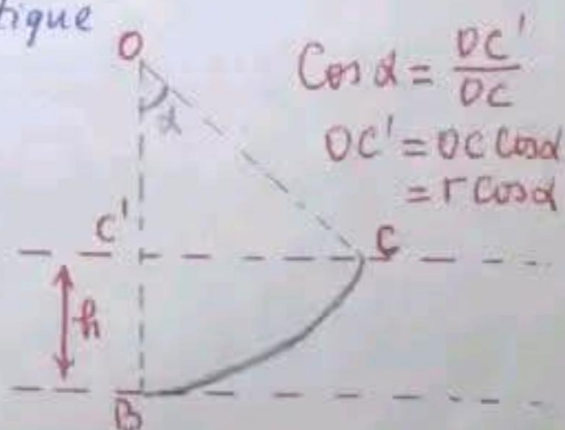 tique
O
α
Cos α = OC' / OC
OC' = OC Cosα
= r Cosα
C'
C
h
B